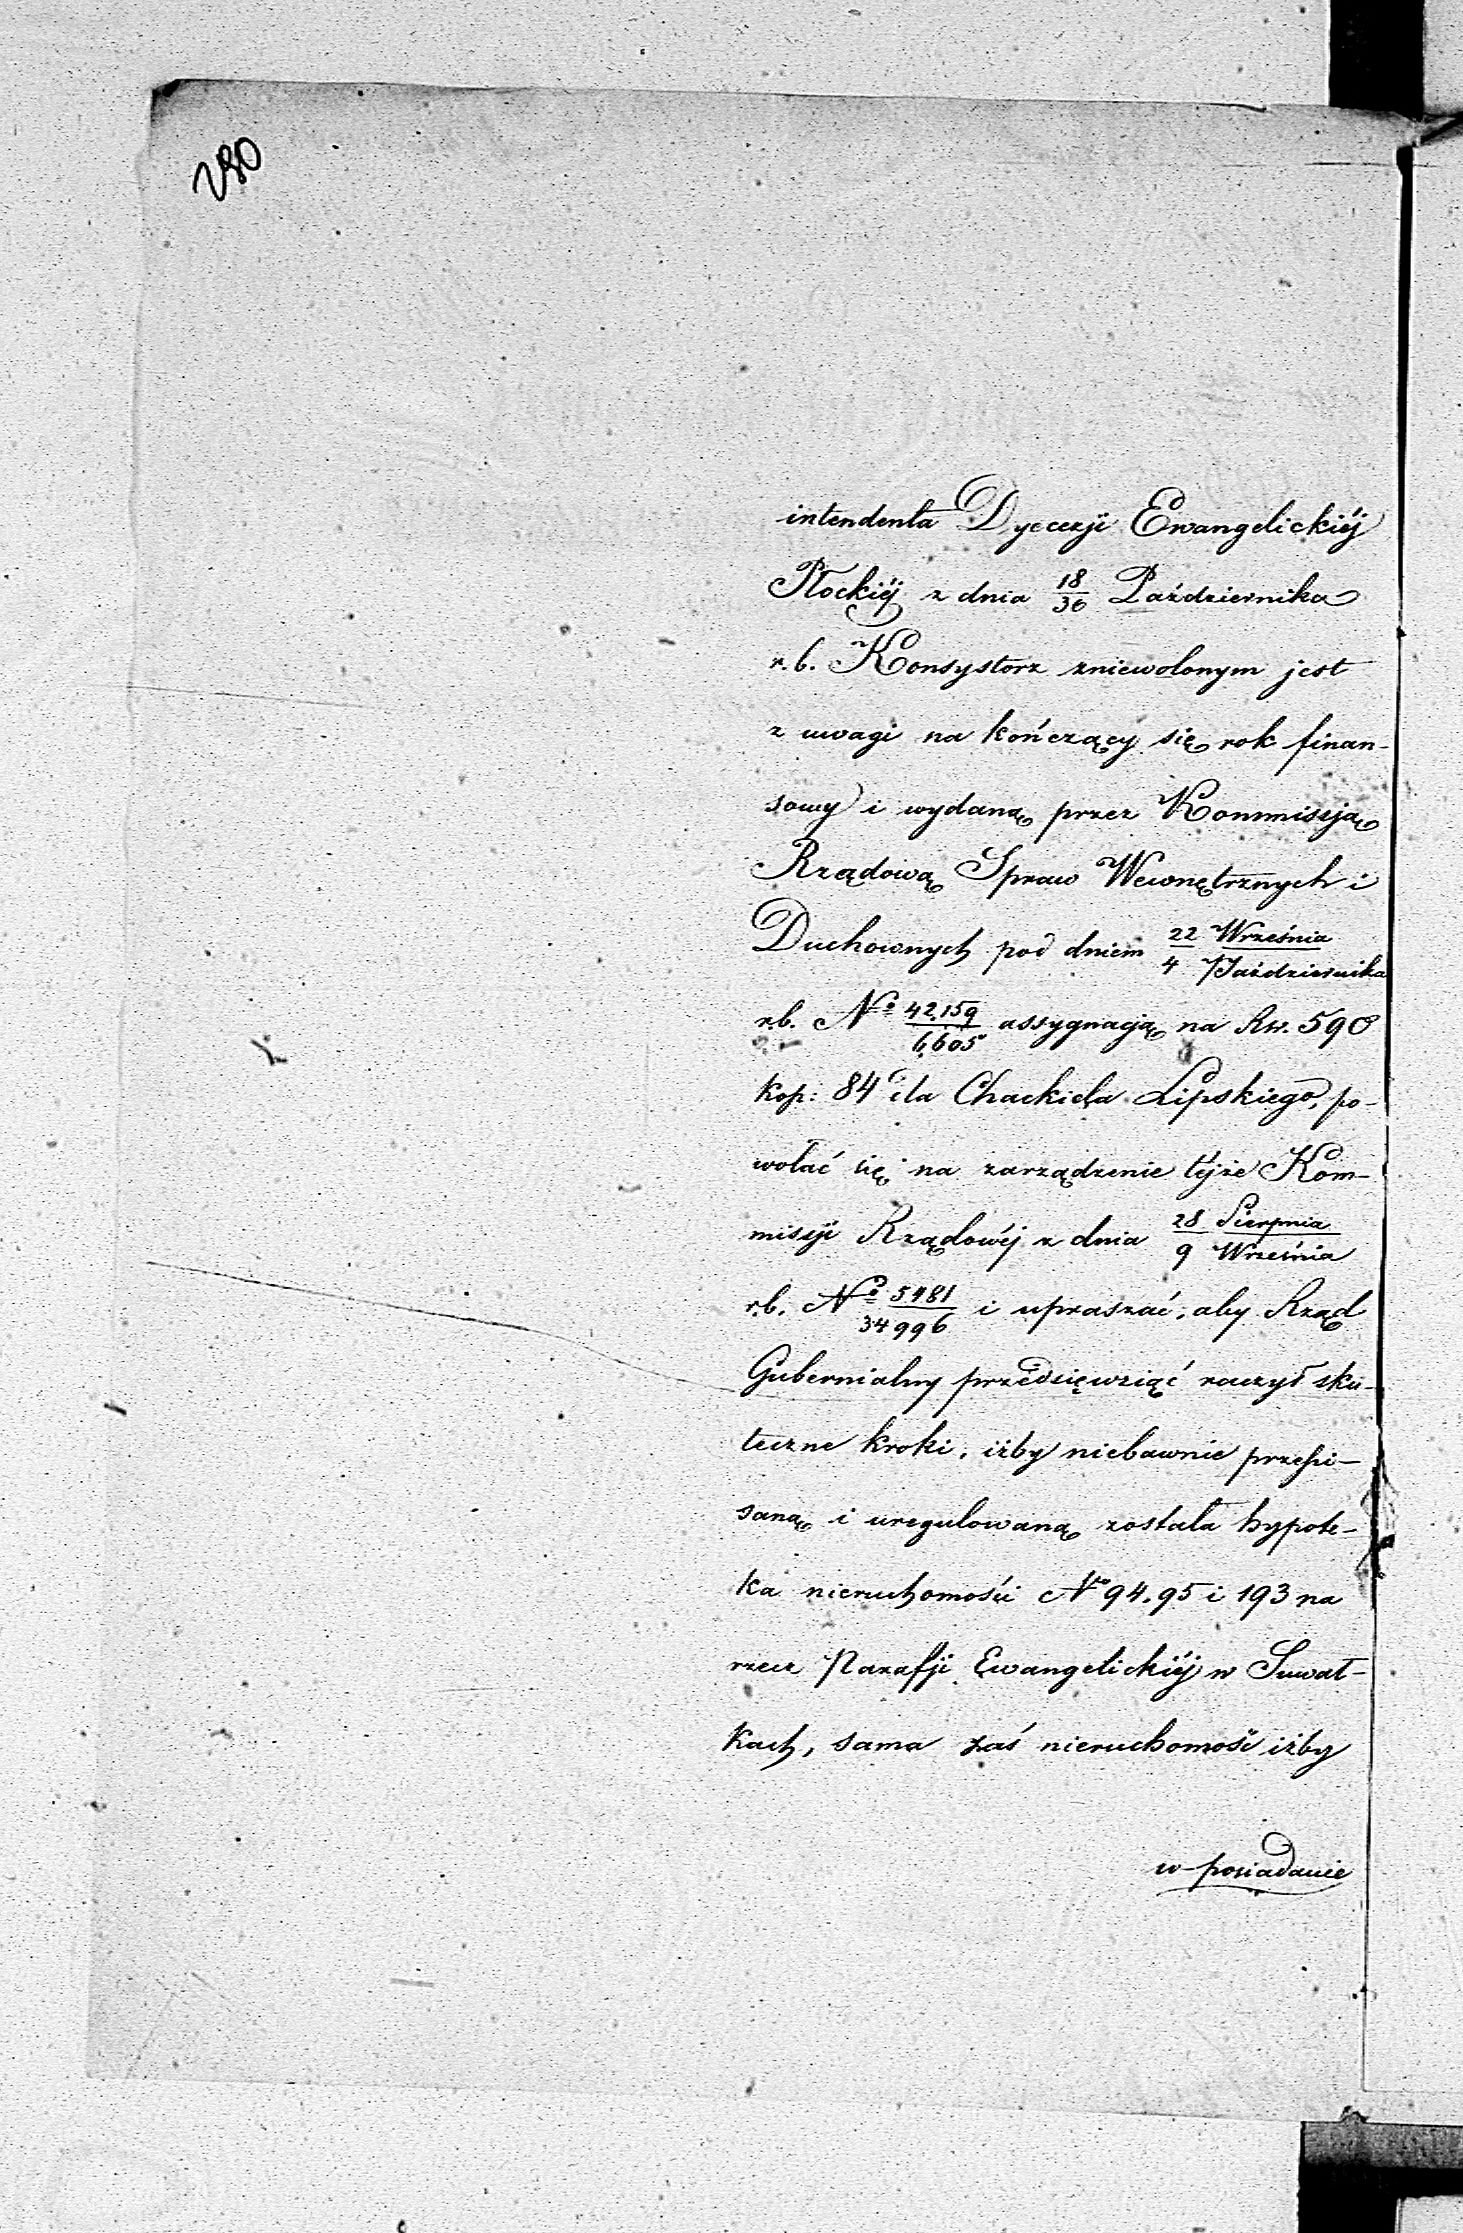 280
intendenta Dyecezji Ewangelickiéj
Płockiéj z dnia 18/30 Października
r.b. Konsystorz zniewolonym jest
z uwagi na kończący się rok finan-
sowy i wydaną przez Kommissją
Rządową Spraw Wewnętrznych i
Duchownych pod dniem 22 Września / 4 Października
r.b. № 42,159/6,605 assygnacją na Rs. 590
kop: 84 dla Chackiela Lipskiego, po-
wołać się na zarządzenie téjże Kom-
missji Rządowéj z dnia 28 Sierpnia / 9 Września
r.b. № 5481/34996 i upraszać, aby Rząd
Gubernialny przedsięwziąć raczył sku-
teczne kroki, iżby niebawnie przepi-
saną i uregulowaną została hypote-
ka nieruchomości № 94. 95 i 193 na
rzecz Parafji Ewangelickiéj w Suwał-
kach, sama zaś nieruchomość iżby
w posiadanie